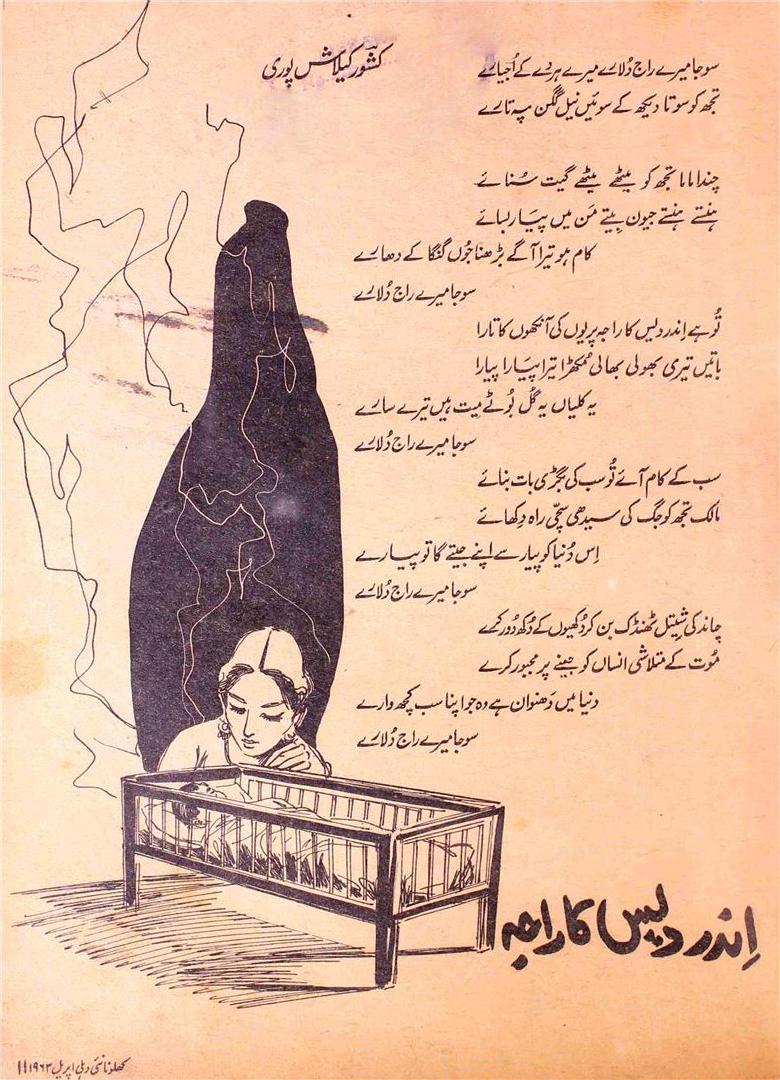 کشور کیلاش پوری
سو جا میرے راج دُلارے میرے ہردے کے اُجیارے
تجھ کو سوتا دیکھ کے سوئیں نیل گگن پہ تارے
چندا ماما تجھ کو میٹھے میٹھے گیت سُنائے
ہنستے ہنستے جیون بیتے مَن میں پیار بسائے
کام ہو تیرا آگے بڑھنا جُوں گنگا کے دھارے
سو جا میرے راج دُلارے
تُو ہے اِندر دیس کا راجہ پریوں کی آنکھوں کا تارا
باتیں تیری بھولی بھالی مُکھڑا تیرا پیارا پیارا
یہ کلیاں یہ گُل بُوٹے مِیت ہیں تیرے سارے
سو جا میرے راج دُلارے
سب کے کام آئے تُو سب کی بگڑی بات بنائے
مالک تجھ کو جگ کی سیدھی سچّی راہ دِکھائے
اِس دُنیا کو پیار سے اپنے جیتے گا تو پیارے
سو جا میرے راج دُلارے
چاند کی شِیتل ٹھنڈک بن کر دُکھیوں کے دُکھ دُور کرے
مَوت کے متلاشی انساں کو جینے پر مجبور کرے
دنیا میں دَھنوان ہے وہ جو اپنا سب کچھ وارے
سو جا میرے راج دُلارے
اِندر دیس کا راجہ
کھلونا نئی دہلی اپریل ۱۹۶۳ ۱۱